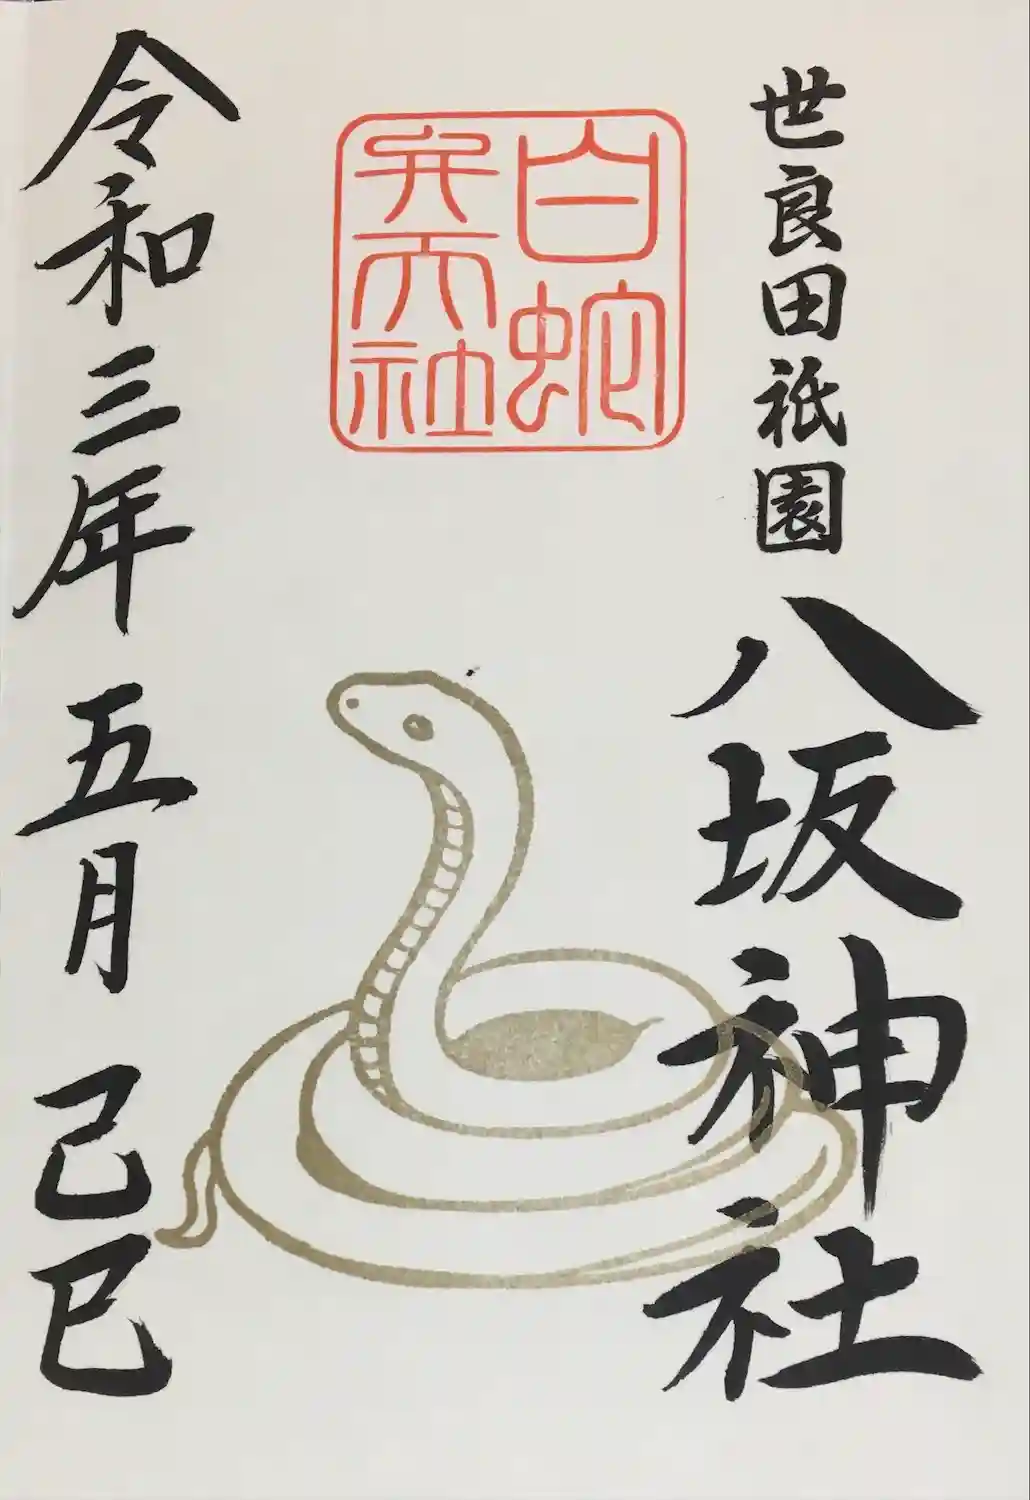 世良田祇園 八坂神社
白蛇
弁天社
令和三年 五月 己巳